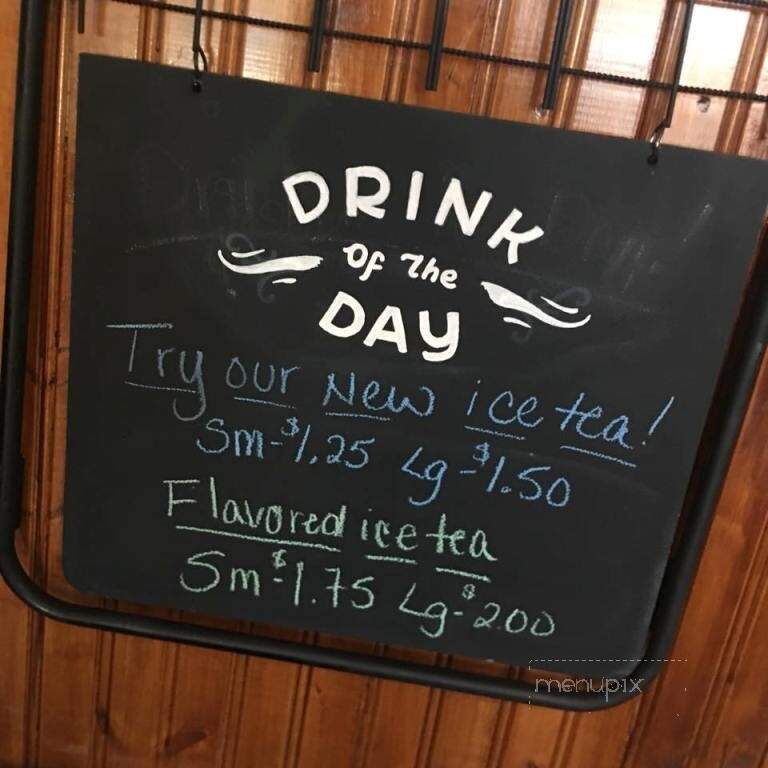 DRINK
Of The
DAY
Try our New ice tea!
Sm-$1.25 Lg-$1.50
Flavored ice tea
Sm-$1.75 Lg-$2.00
menupix